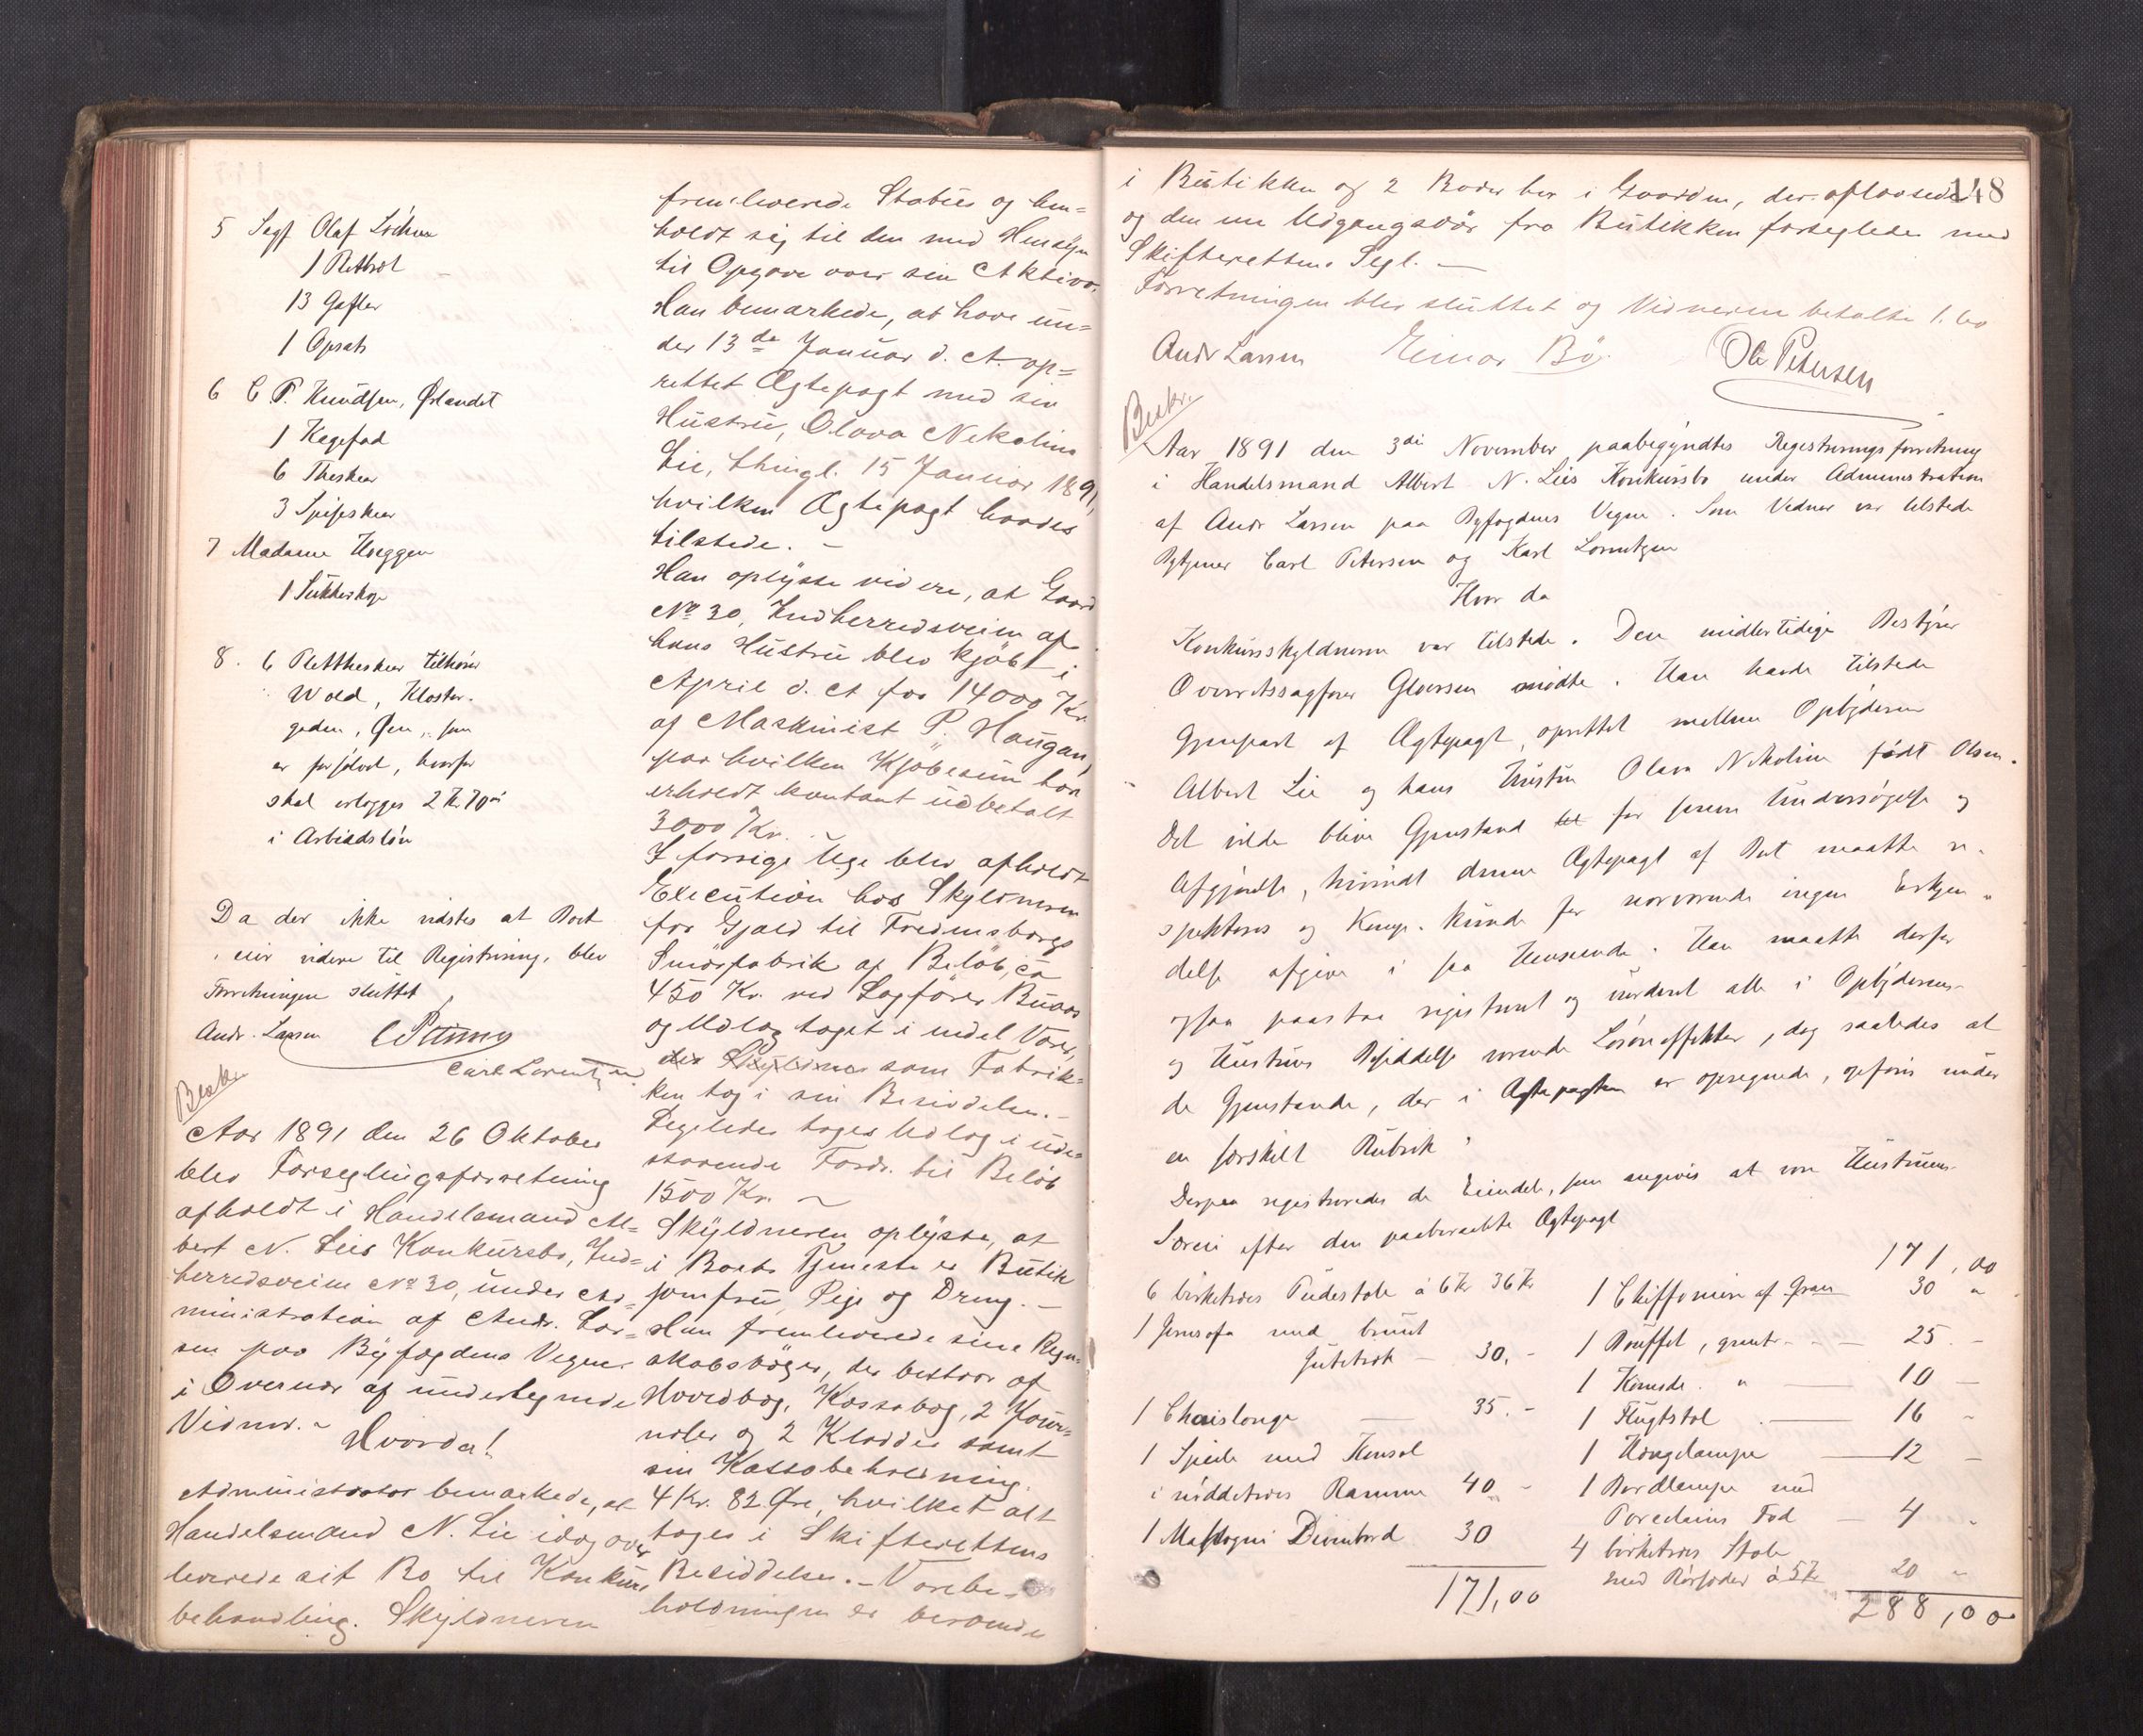 5 Sagf Olaf Løchen
1 Rettræt
13 Gafler
1 Opsats
6 C. P. Knudssen, Ørlandet
1 Kagefad
6 Theskeer
3 Spiseskeer
7 Madame Hoeggen
1 Sukkerkop
8. 6 Pletttheskeer tilhører
Wold, Kloster-
gaden, Øen, som
er forsølvet, hvorfor
skal erlægges 2 Kr. 70 ø
i Arbeidsløn
Da der ikke vidstes at Boet
eier videre til Registrering, blev
Forretningen sluttet
Andr. Larsen
Carl Lorentzen
Beskr.
Aar 1891 den 26 Oktober
blev Forseglingsforretning
afholdt i Handelsmand Al=
bert N. Lies Konkursbo, Ind=
herredsveien No 30, under Ad=
ministration af Andr. Lar=
sen paa Byfogdens Vegne
i Overvær af undertegnede
Vidner. -
Hvorda!
Administrator bemærkede, at
Handelsmand N. Lie idag over
leverede sit Bo til Konkurs
behandling. Skyldneren
fremleverede Status og hen=
holdt sig til den med Hensyn
til Opgave over sin Aktiva.
Han bemærkede, at have un=
der 13de Januar d. A. op=
rettet Ægtepagt med sin
Hustru, Olava Nekoline
Lie, thingl. 15 Januar 1891,
hvilken Ægtepagt haves
tilstede. -
Han oplyste videre, at Gaard
No 30, Indherredsveien af
hans Hustru blev kjøbt i
April d. A for 14000 Kr.
af Maskinist P. Haugan,
paa hvilken Kjøbesum han
erholdt kontant udbetalt
3000 Kr. -
I forrige Uge blev afholdt
Execution hos Skyldneren
for Gjæld til Fredensborgs
Smørfabrik af Beløb, ca
450 Kr. ved Sagfører Buaas
og Udlæg taget i endel Varer,
der Skyldner som Fabrik=
ken tog i sin Besiddelse. -
Ligeledes toges Udlæg i ude=
staaende Fordr. til Beløb
1500 Kr. ~
Skyldneren oplyste, at
i Boets Tjeneste er Butik
jomfru, Pige og Dreng. -
Han fremleverede sine Regn=
skabsbøger, der bestaar af
Hovedbog, Kassabog, 2 Jour=
naler og 2 Kladder samt
sin Kassabeholdning
4 Kr. 82 Øre, hvilket alt
toges i Skifterettens
Besiddelse. - Varebe=
holdningen er beroende
148
i Butikken og 2 Boder her i Gaarden, der aflaasedes
og den ene Udgangsdør fra Butikken forsegledes med
Skifterettens Segl. -
Forretningen blev sluttet og Vidnerne betalte 1.60
Andr Larsen Einar Bø. Ole Petersen
Beskr.
Aar 1891 den 3die November paabegyndtes Registreringsforretning
i Handelsmand Albert N. Lies Konkursbo under Administration
af Andr Larsen paa Byfogdens Vegne. Som Vidner var tilstede
Bytjener Carl Petersen og Karl Lorentzen
Hvor da
Konkursskyldneren var tilstede. Den midlertidige Bestyrer
Overretssagfører Gløersen mødte. Han havde tilstede
Gjenpart af Ægtepagt, oprettet mellem Opbyderen
Albert Lie og hans Hustru Olava Nekoline født Olsen.
Det vilde blive Gjenstand for senere Undersøgelse og
Afgjørelse, hvorvidt denne Ægtepagt af Boet maatte re-
spekteres og Komp. kunde for nærværende ingen Erkjen-
delse afgive i saa Henseende. Han maatte derfor
ogsaa paastaa registreret og vurderet alle i Opbyderens
og Hustrues Besiddelse værende Løsøreeffekter, dog saaledes at
de Gjenstande, der i Ægtepagten er opregnede, opføres under
en særskilt Rubrik.
Derpaa registreredes de Eiendele, som angives at være Hustruens
Særeie efter den paaberaabte Ægtepagt
6 birketræes Pudestole á 6 Kr 36 Kr
1 Jernsofa med brunt
Jutetræk - 30. -
1 Chaislonge 35. -
1 Speile med Konsol
i nøddetræes Ramme 40 -
1 Mahogni Divanbord 30
171,00
171,00
1 Chiffoniere af Gran 30 "
1 Bouffet, grent - - - 25. -
1 Komode. " 10 -
1 Flugtstol 16 -
1 Hængelampe 12 -
1 Bordlampe med
Porcelains Fod - 4 -
4 birketræes Stole
med Rørsæder á 5 Kr 20 "
288,00